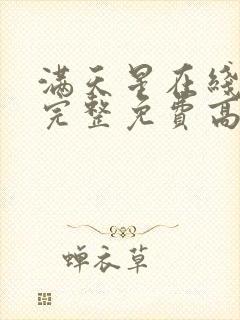 满天星在綫
完整免費高
蝉衣草